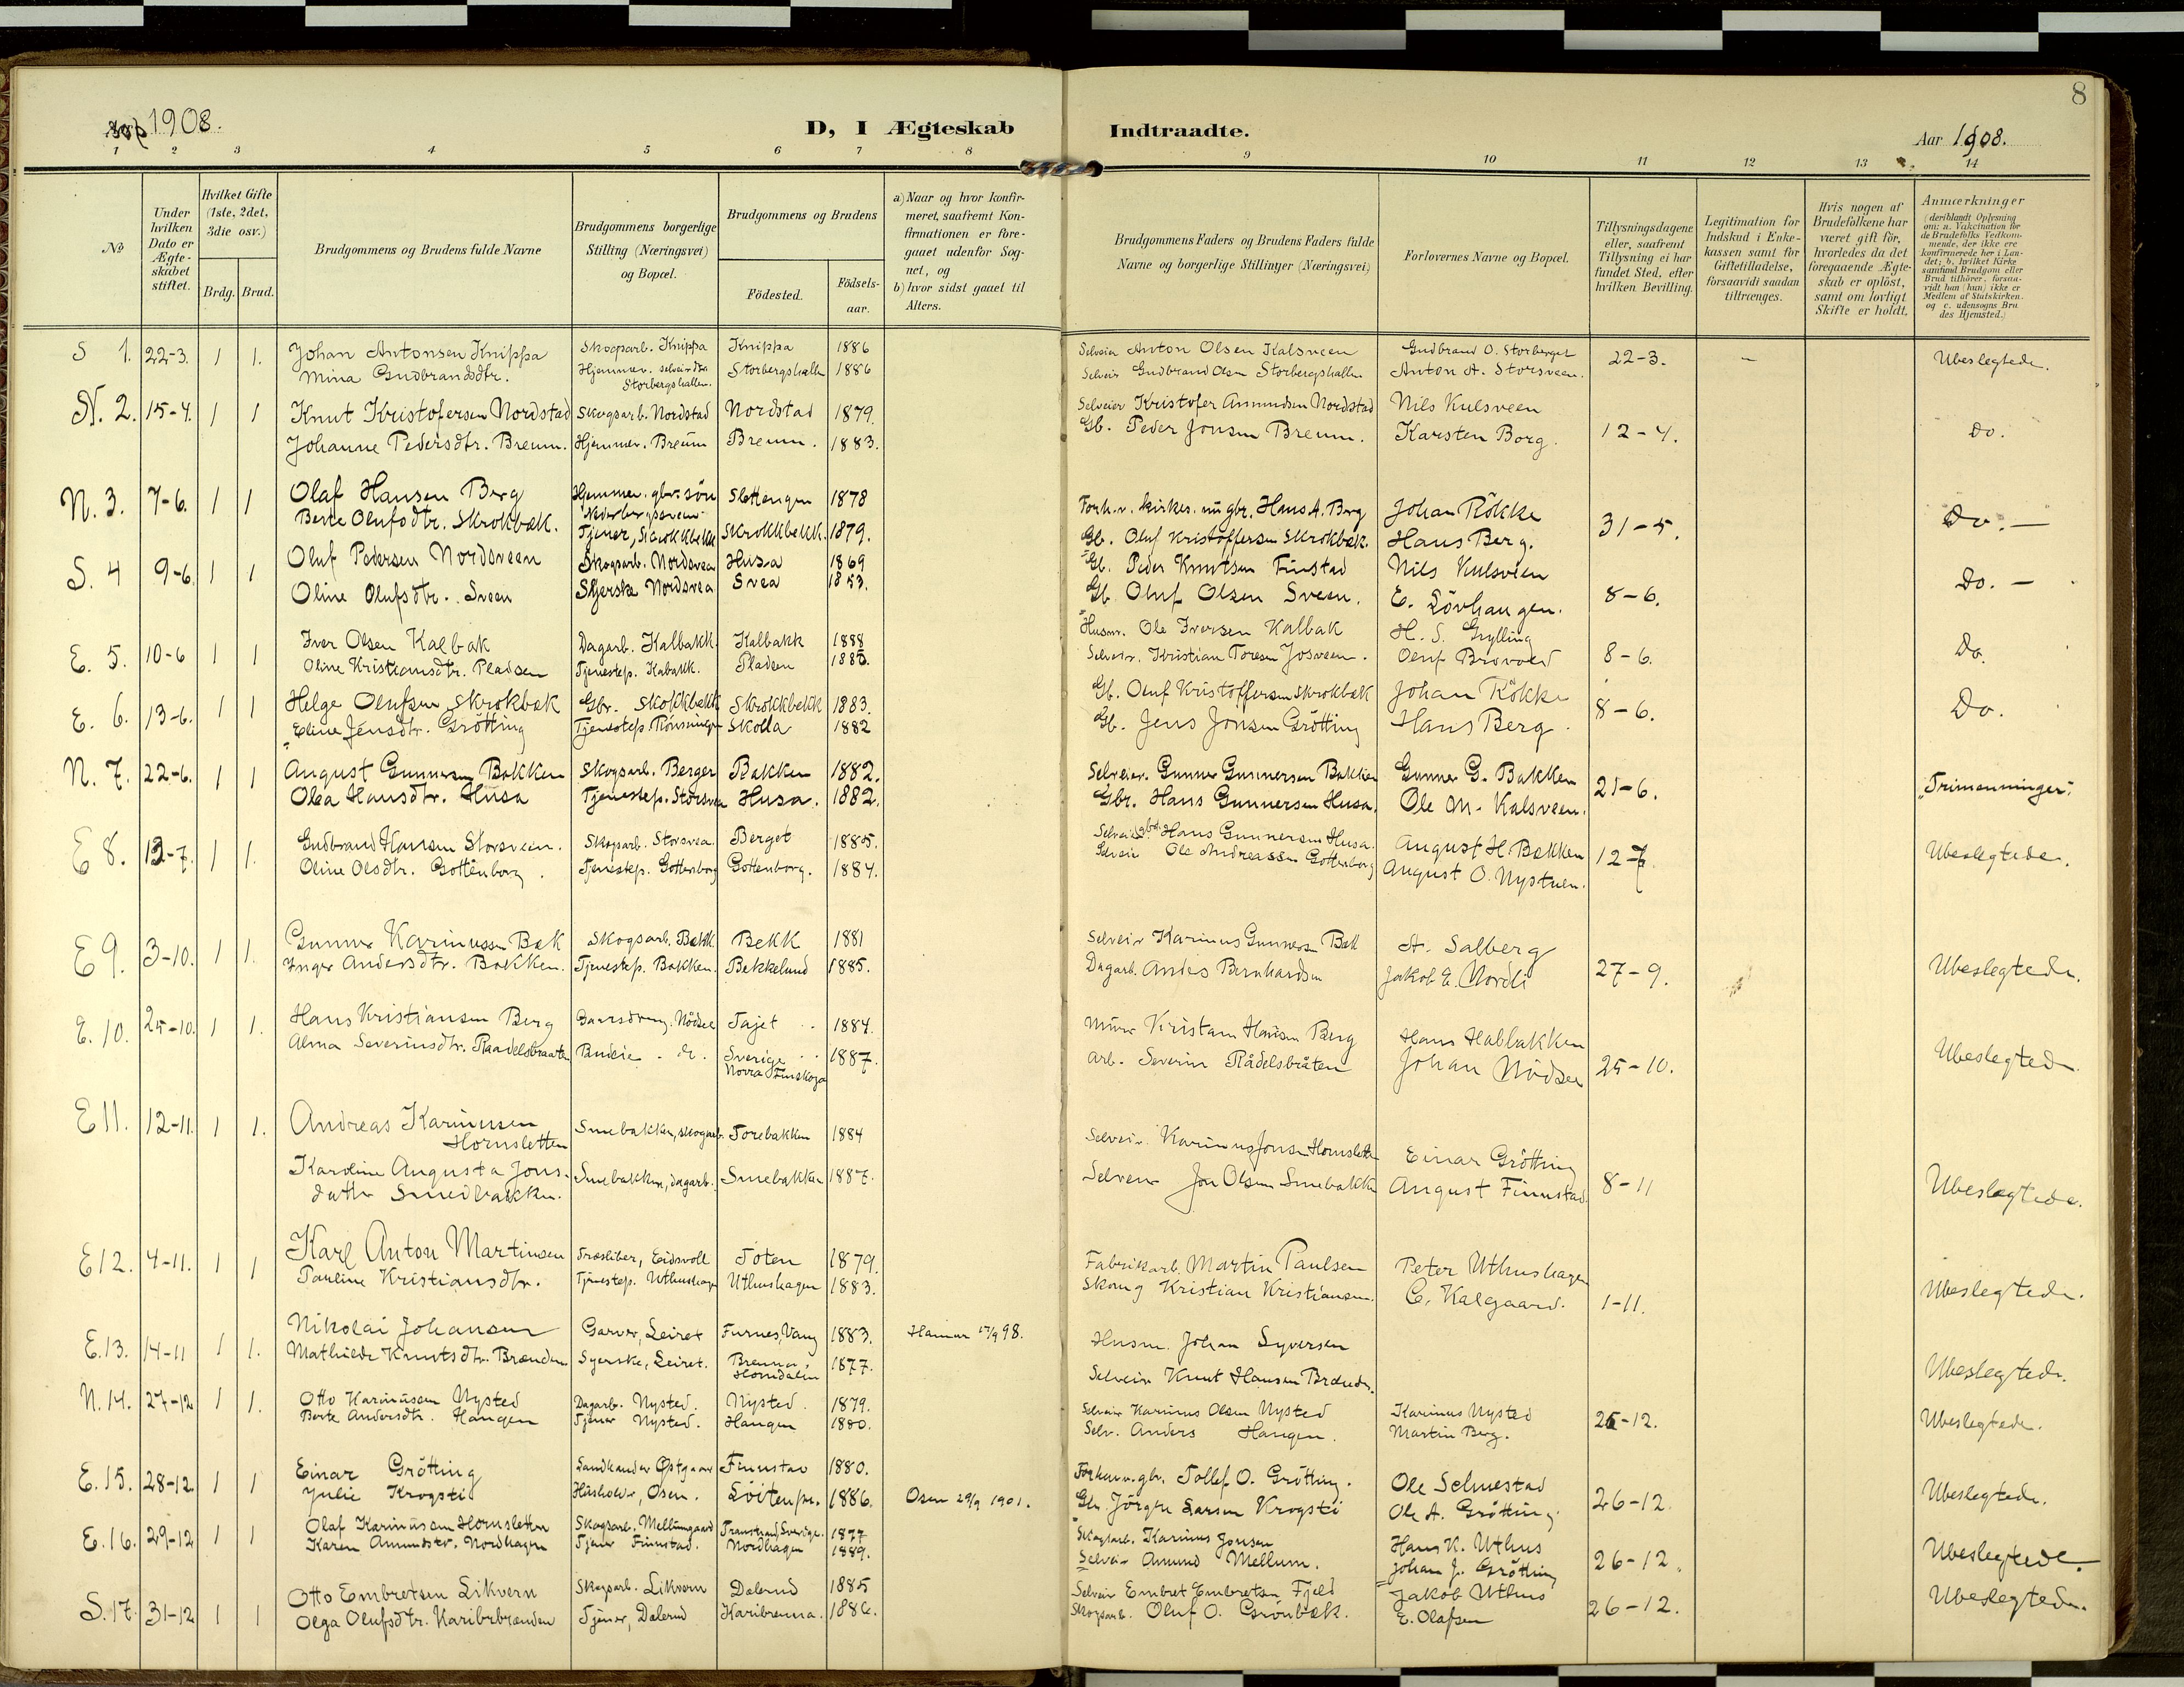 8
1908.
D, I Ægteskab Indtraadte.
Aar 1908.
1 2 3 4 5 6 7 8 9 10 11 12 13 14
No
Under hvilken Dato er Ægte-skabet stiftet.
Hvilket Gifte (1ste, 2det, 3die osv.)
Brdg. Brud.
Brudgommens og Brudens fulde Navne
Brudgommens borgerlige Stilling (Næringsvei) og Bopæl.
Brudgommens og Brudens
Födested.
Födsels-aar.
a) Naar og hvor konfir-meret, saafremt Kon-firmationen er fore-gaaet udenfor Sog-net, og
b) hvor sidst gaaet til Alters.
Brudgommens Faders og Brudens Faders fulde Navne og borgerlige Stillinger (Næringsvei)
Forlovernes Navne og Bopæl.
Tillysningsdagene eller, saafremt Tillysning ei har fundet Sted, efter hvilken Bevilling.
Legitimation for Indskud i Enke-kassen samt for Giftetilladelse, forsaavidt saadan tiltrænges.
Hvis nogen af Brudefolkene har været gift för, hvorledes da det foregaaende Ægte-skab er oplöst, samt om lovligt Skifte er holdt.
Anmærkninger (deriblandt Oplysning om: a. Vakcination for de Brudefolks Vedkom-mende, der ikke ere konfirmerede her i Lan-det; b. hvilket Kirke samfund Brudgom eller Brud tilhörer, forsaa-vidt han (hun) ikke er Medlem af Statskirken og c. udensogns Bru des Hjemsted.)
S 1. 22-3. 1 1. Johan Antonsen Knippa Skogsarb. Knippa Knippa 1886 Selveier Anton Olsen Kalsveen Gudbrand O. Storberget 22-3. - Ubeslegtede.
Mina Gudbrandsdtr. Hjemmev. selveierdtr. Storbergshallen. Storbergshalln 1886 Selveier Gudbrand Olsen Storbergshalln. Anton A. Storsveen.
N. 2. 15-4. 1 1 Knut Kristofersen Nordstad Skogsarb. Nordstad Nordstad 1879. Selveier Kristofer Amundsen Nordstad Nils Kulsveen 12-4. Do.
Johanne Pedersdtr. Breum. Hjemmev. Breum Breum. 1883. Gb. Peder Jonsen Breum. Karsten Borg.
N. 3. 7-6. 1 1 Olaf Hansen Berg Hjemmev. gbr. sön Slettengen 1878 Forh.v. kirkes. nu gbr. Hans A. Berg Johan Rökke 31-5. Do. -
Berte Olufsdtr. Skrokbæk. Tjener, Skrokkbekk Skrokkbekk. 1879. Gb. Oluf Kristoffersen Skrokbæk. Hans Berg.
S. 4 9-6. 1 1 Oluf Pedersen Nordsveen Skogsarb. Nordsvea Husa 1869 Gb. Peder Knutsen Finstad Nils Kulsveen 8-6. Do. -
Oline Olufsdtr. Sveen Syerske Nordsvea Svea 1853. Gb. Oluf Olsen Sveen. E. Lövhaugen.
E. 5. 10-6 1 1 Iver Olsen Kalbak Dagarb. Kalbakk. Kalbakk 1888 Husm. Ole Iversen Kalbak H. S. Grylling 8-6. Do.
Oline Kristiansdtr. Pladsen Tjenestep. Kabakk. Pladsen 1885. Selveier. Kristian Toresen Josveen. Oluf Brovold
E. 6. 13-6. 1 1 Helge Olufsen Skrokbæk Gbr. Skokkbekk Skrokkbekk 1883. Gb. Oluf Kristoffersen Skrokbæk Johan Rökke 8-6. Do.
Eline Jensdtr. Grötting Tjenestep. Rönningen Skolla 1882 Gb. Jens Jonsen Grötting Hans Berg.
N. 7. 22-6. 1 1 August Gunnersen Bakken Skogsarb. Berger Bakken 1882. Selveier. Gunner Gunnersen Bakken Gunner G. Bakken 21-6. "Trimenninger."
Olea Hansdtr. Husa Tjenestep. Storsvea Husa. 1882. Gbr. Hans Gunnersen Husa. Ole M. Kalsveen.
E 8. 12-7. 1 1. Gudbrand Hansen Storsveen. Skogsarb. Storsvea. Berget 1885. Selveier Hans Gunnersen Husa. August H. Bakken 12-7. Ubeslegtede.
Oline Olsdtr. Gottenborg. Tjenestep. Gottenborg Gottenborg. 1884. Selveier Ole Andreassen Gottenborg August O. Nystuen.
E 9. 3-10. 1 1. Gunner Karinussen Bæk Skogsarb. Bækk Bekk 1881 Selveier Karinus Gunnersen Bæk A. Salberg 27-9. Ubeslegtede.
Inger Andersdtr. Bakken. Tjenestep. Bakken. Bekkelund 1885. Dagarb. Anders Bernhardsen Jakob E. Nordli
E. 10. 25-10. 1 1. Hans Kristiansen Berg Gaardsdreng. Nödsee Tajet 1884. Murer Kristian Hansen Berg Hans Habbakken 25-10. Ubeslegtede
Alma Severinsdtr. Raadelsbraaten Budeie - do. Sverige Norra Finskoga 1887. Arb. Severin Rådelsbråten Johan Nödsee
E 11. 12-11. 1 1. Andreas Karinusen Hornsletten Smebakken, skogarb. Torebakken 1884 Selveier Karinus Jonsen Hornsletten Einar Grötting 8-11 Ubeslegtede.
Karoline Augusta Jons-datter Smedbakken. Smebakken, dagarb. Smebakken 1887. Selveier Jon Olsen Smebakken August Finnstad
E 12. 4-11. 1 1 Karl Anton Martinsen Træsliber, Eidsvoll Toten 1879. Fabrikarb. Martin Paulsen Peter Uthushagen 1-11. Ubeslegtede.
Pauline Kristiansdtr. Tjenestep. Uthushagen Uthushagen 1883. Skomg Kristian Kristiansen. C. Kalgaard.
E. 13. 14-11 1 1. Nikolai Johansen Garver, Leiret Furnes, Vang 1883. Hamar 17/9 98. Husm. Johan Syversen Ubeslegtede.
Mathilde Knutsdtr. Brænden Syerske, Leiret. Brenna, Horndalen 1877. Selveier Knut Hansen Brænden.
N. 14. 27-12 1 1. Otto Karinusen Nysted Dagarb. Nysted. Nysted. 1879. Selveier Karinus Olsen Nysted Karinus Nysted 26-12. Ubeslegtede.
Berte Andersdtr. Haugen Tjener Nysted. Haugen 1880. Selv. Anders Haugen. Martin Berg.
E. 15. 28-12. 1 1 Einar Grötting Landhandler Östgaard Finnstad 1880. Forhenv. gbr. Tollef O. Grötting. Ole Selmestad 26-12. Ubeslegtede.
Julie Krogsti Husholder, Osen. Löiten pr. 1886. Osen 29/9 1901. Gbr. Jörgen Larsen Krogsti Ole A. Grötting
E. 16. 29-12 1 1 Olaf Karinusen Hornsletten Skogsarb. Mellumgaard Transtrand, Sverige. 1877 Skogsarb. Karinus Jonsen Hans K. Uthus 26-12. Ubeslegtede
Karen Amundsdtr. Nordhagen Tjener Finnstad. Nordhagen 1889. Selveier Amund Mellum. Johan J. Grötting
S. 17. 31-12 1 1 Otto Embretsen Likvern Skogsarb. Likvern Dalerud 1885 Selveier Embret Embretsen Fjeld Jakob Uthus 26-12. Ubeslegtede.
Olga Olufsdtr. Karibrbrænden Tjener, Dalerud Karibrenna. 1886. Skogsarb. Oluf O. Grönbæk. E. Olafsen